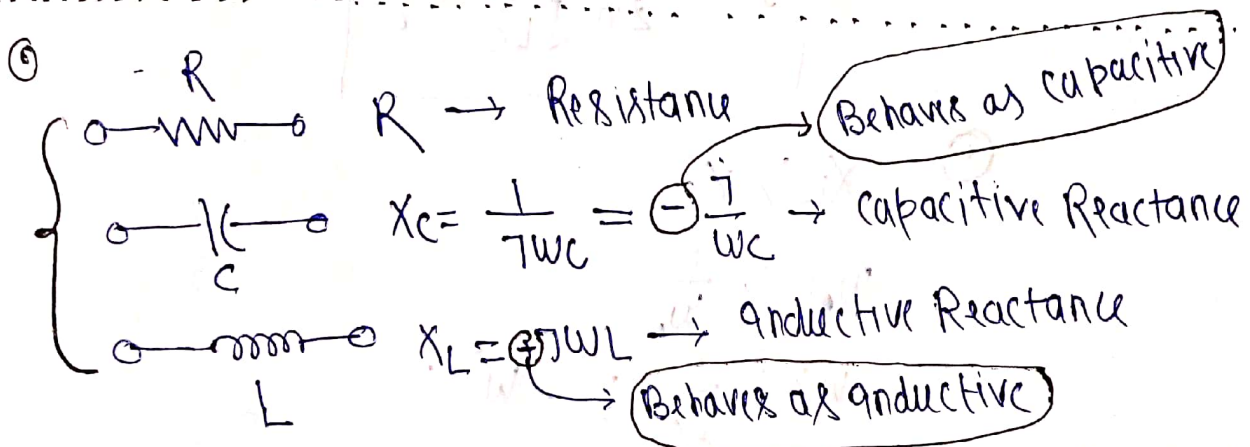 R
R → Resistance
Behaves as capacitive
C
Xc = 1/jωC = ⊖ j/ωC → Capacitive Reactance
L
X_L = ⊕jωL → Inductive Reactance
Behaves as inductive